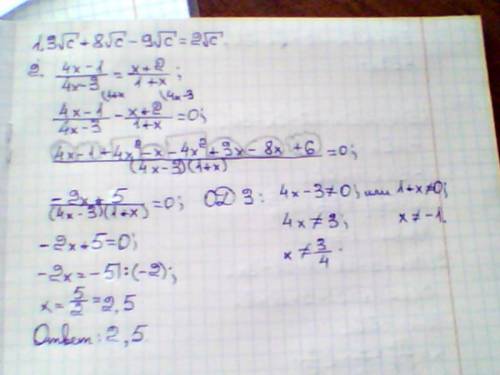 1. 3√c + 8√c - 9√c = 2√c.
2. (4x-1)/(4x-3) = (x+2)/(1+x);
(4x-1)/(4x-3) - (x+2)/(1+x) = 0;
(4x-1+4x²-x-4x²+3x-8x+6)/((4x-3)(1+x)) = 0;
(-2x+5)/((4x-3)(1+x)) = 0; ОДЗ: 4x-3≠0; или 1+x≠0;
4x≠3; x≠-1.
-2x+5=0; x≠3/4.
-2x=-5|:(-2);
x=5/2=2,5
Ответ: 2,5